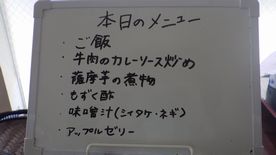 本日のメニュー
・ご飯
・牛肉のカレーソース炒め
・薩摩芋の煮物
・もずく酢
・味噌汁(シイタケ・ネギ)
・アップルゼリー